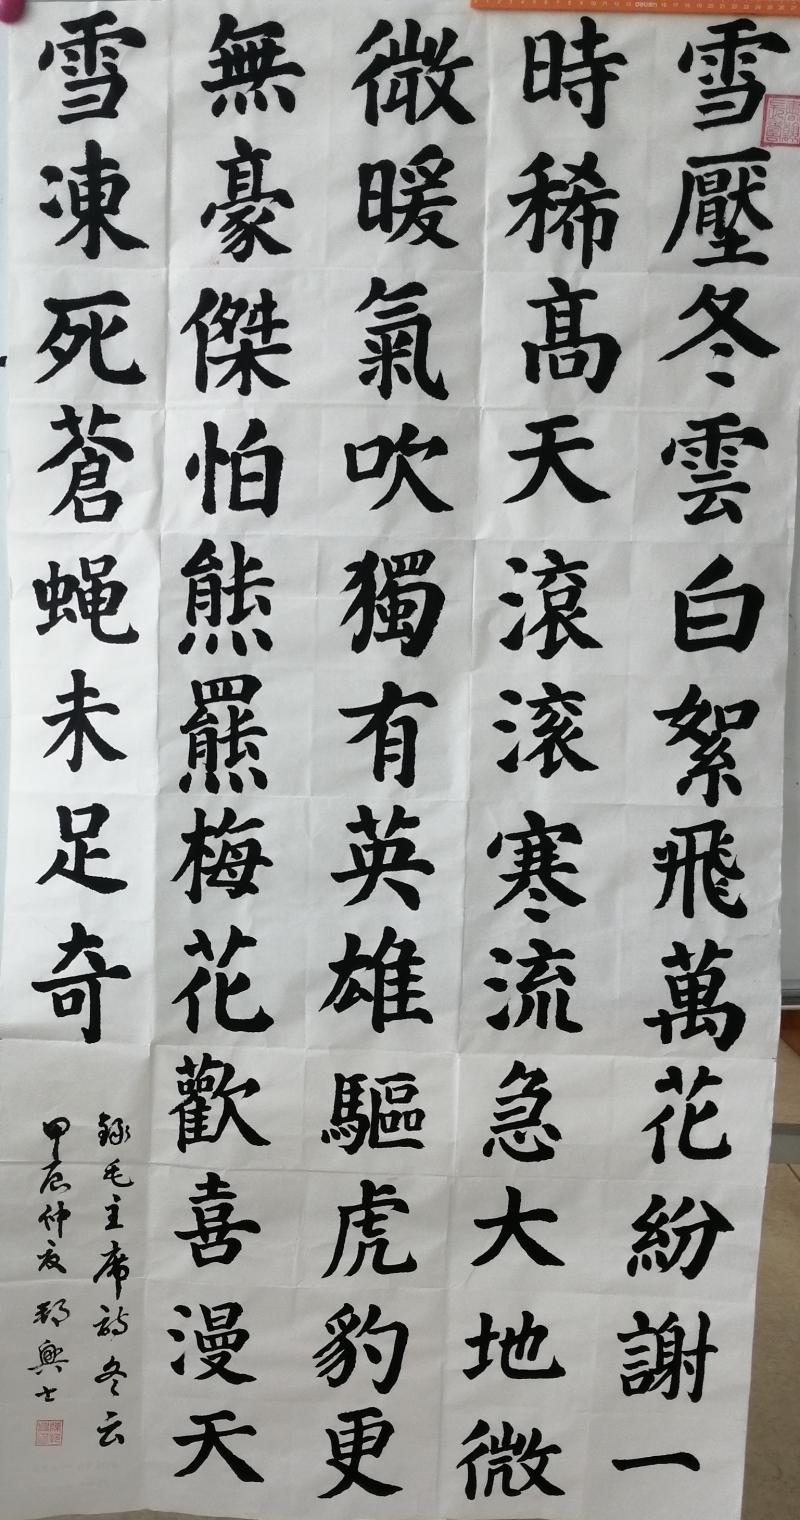 雪壓冬雲白絮飛萬花紛謝一
時稀髙天滾滚寒流急大地微
微暖氣吹獨有英雄驅虎豹更
無豪傑怕熊羆梅花歡喜漫天
雪凍死蒼蝇未足奇
錄毛主席詩冬云
甲辰仲夏 興士